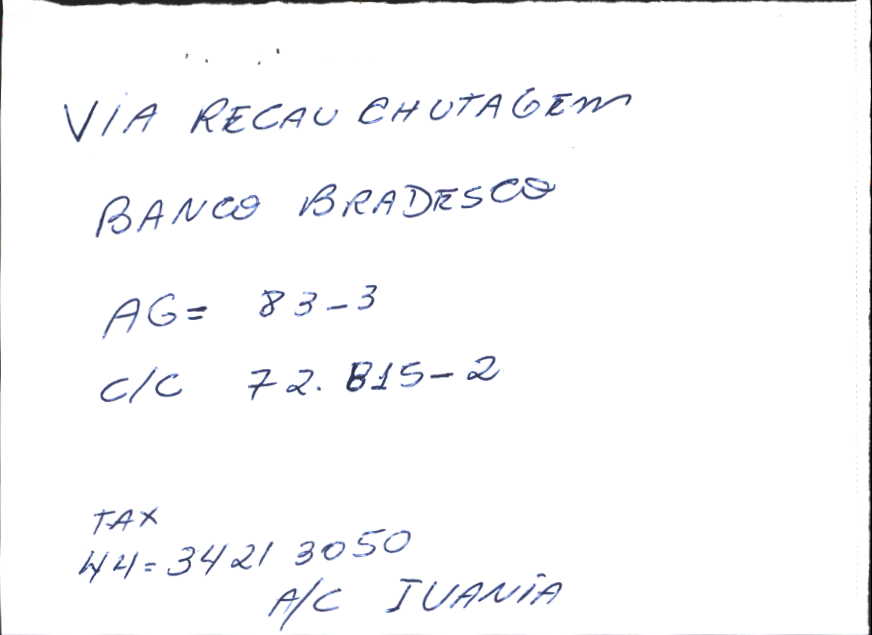 VIA RECAUCHUTAGEM
BANCO BRADESCO
AG= 83-3
C/C 72.815-2
TAX
44=3421 3050
A/C IVANIA